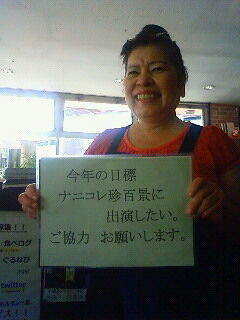 今年の目標
ナニコレ珍百景に
出演したい。
ご協力 お願いします。
食べログ
ぐるなび
twitter